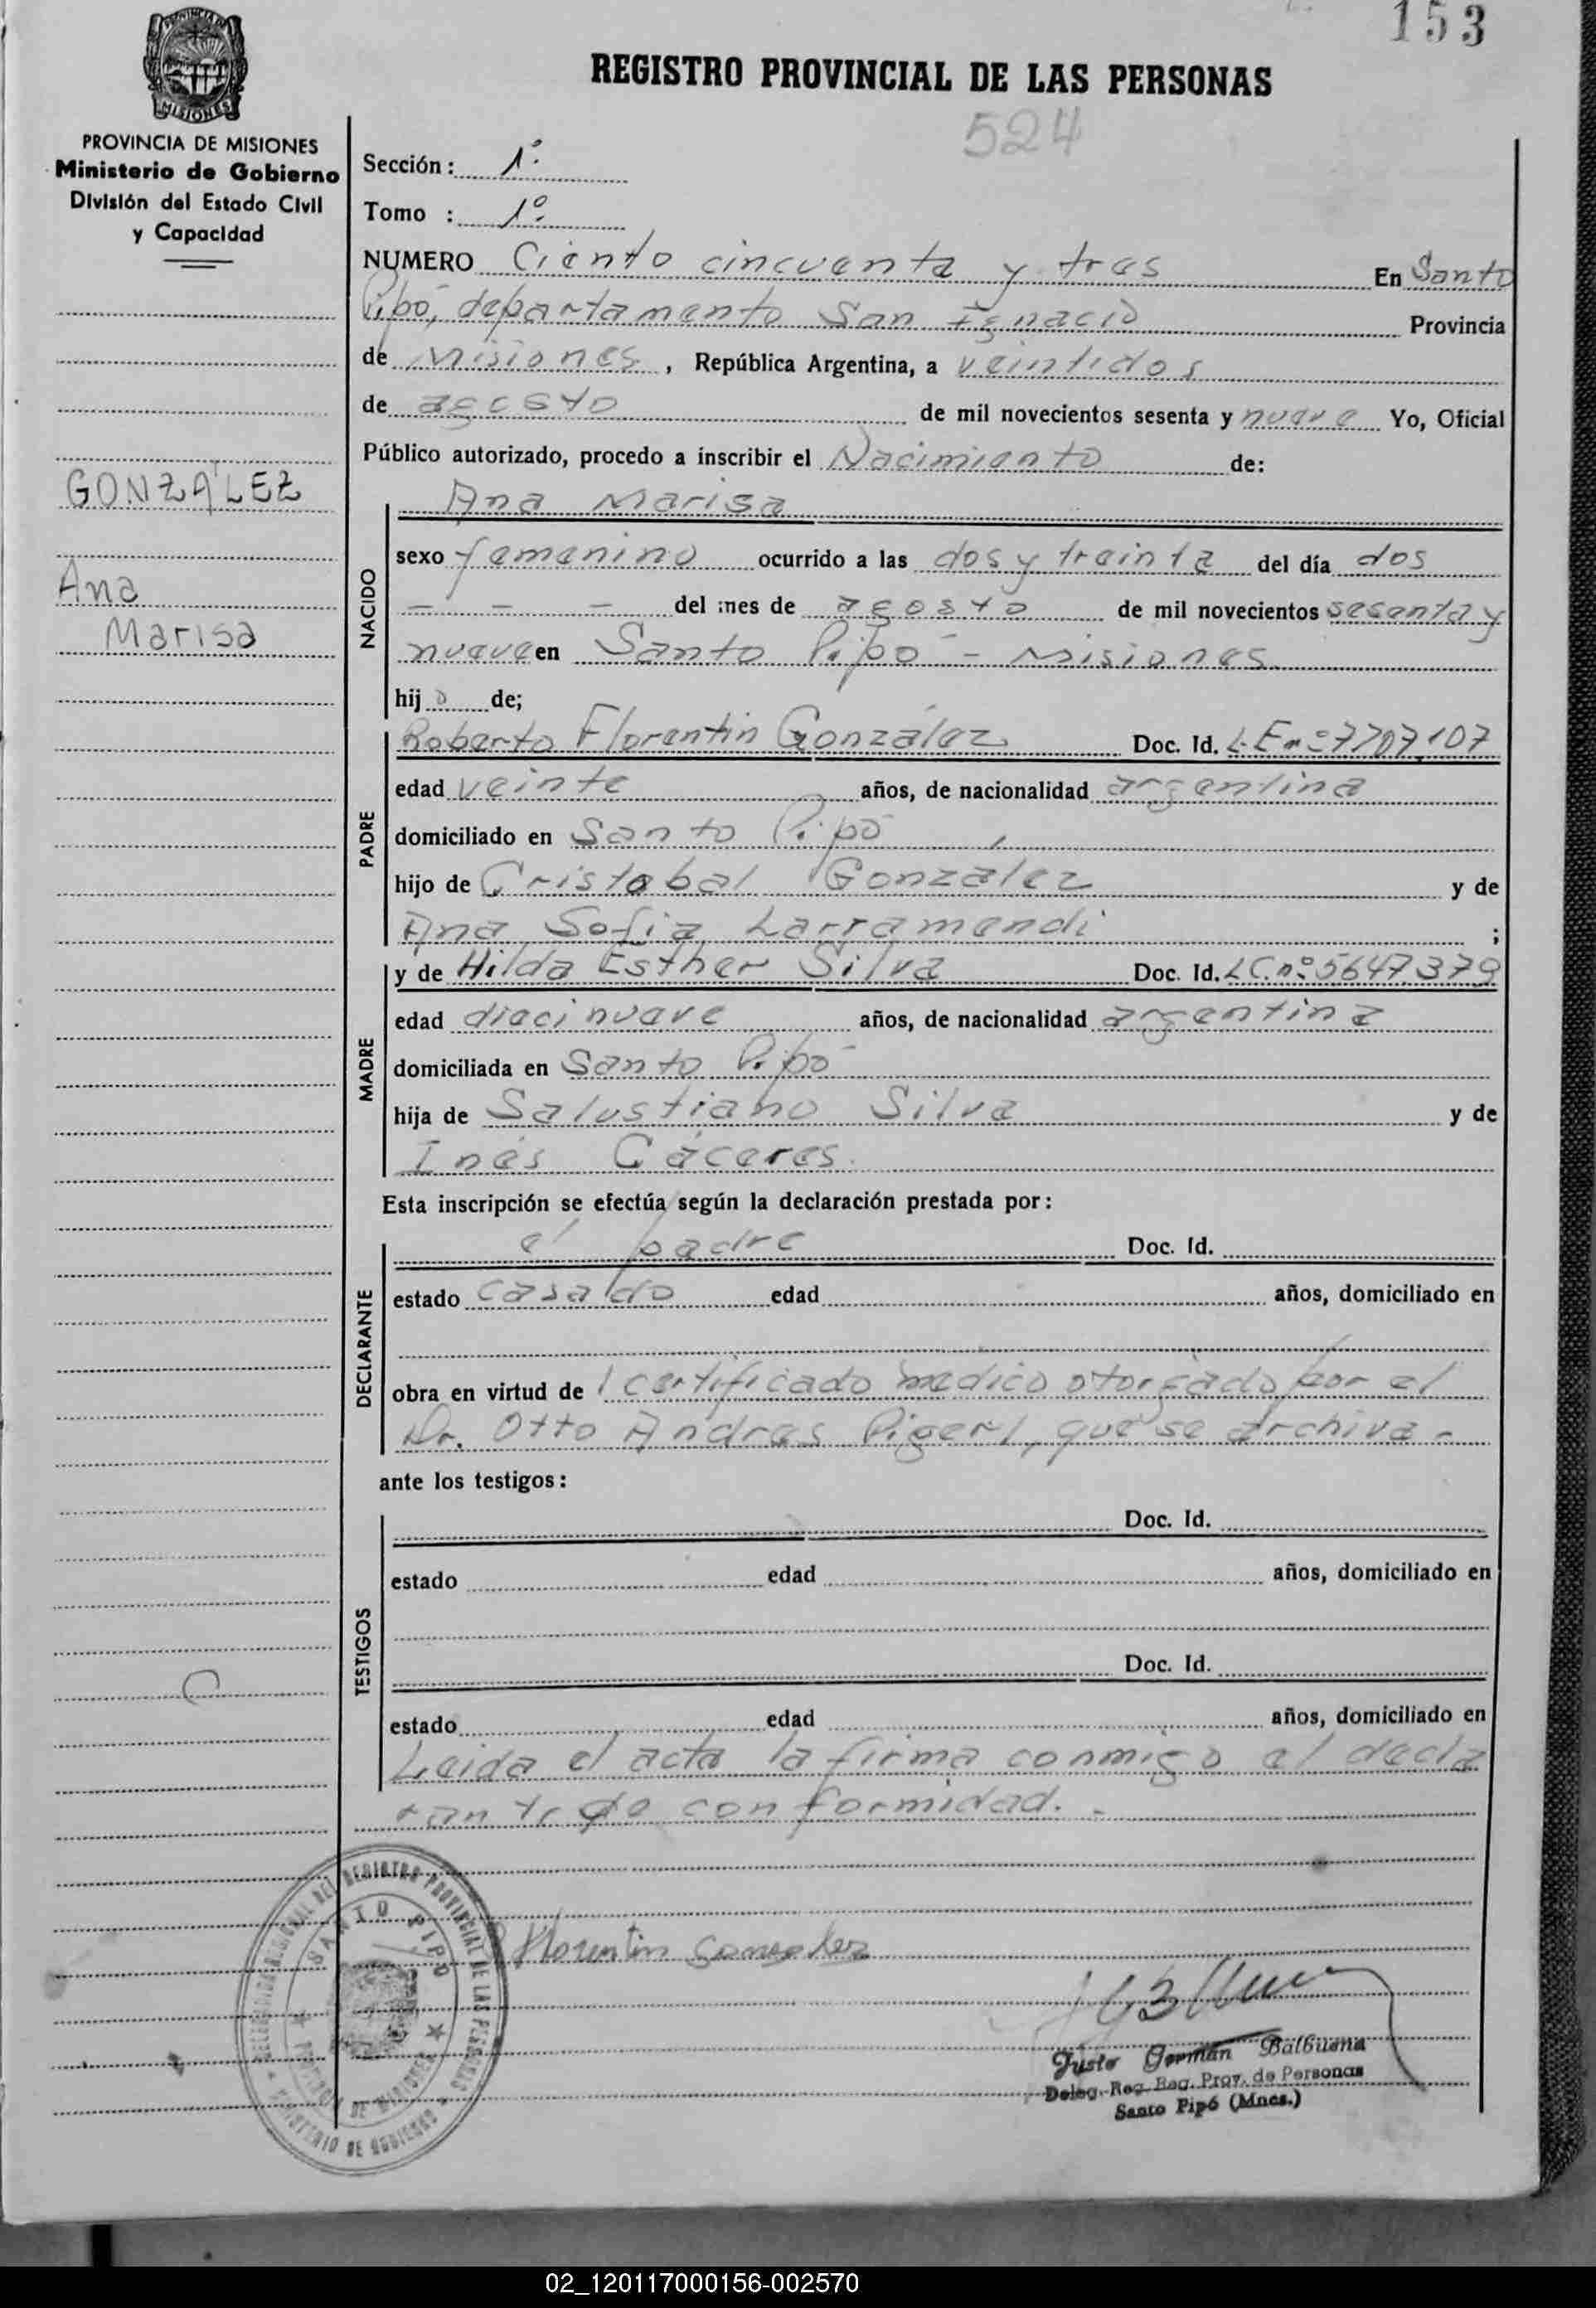 153
PROVINCIA DE
MISIONES
REGISTRO PROVINCIAL DE LAS PERSONAS
524
PROVINCIA DE MISIONES
Ministerio de Gobierno
División del Estado Civil
y Capacidad
Sección: 1º
Tomo : 1º
NUMERO Ciento cincuenta y tres En Santo
Pipó, departamento San Ignacio Provincia
de Misiones, República Argentina, a veintidos
de agosto de mil novecientos sesenta y nueve Yo, Oficial
Público autorizado, procedo a inscribir el Nacimiento de:
GONZÁLEZ
Ana
Marisa
NACIDO
Ana Marisa
sexo femenino ocurrido a las dos y treinta del día dos
— — — del mes de agosto de mil novecientos sesenta y
nueve en Santo Pipó - Misiones
hij a de;
PADRE
Roberto Florentin González Doc. Id. L.E.nº 7707,107
edad veinte años, de nacionalidad argentina
domiciliado en Santo Pipó
hijo de Cristobal González y de
Ana Sofia Larramendi ;
MADRE
y de Hilda Esther Silva Doc. Id. LC.nº 5647.379
edad diecinueve años, de nacionalidad argentina
domiciliada en Santo Pipó
hija de Salustiano Silva y de
Inés Cáceres.
Esta inscripción se efectúa según la declaración prestada por:
DECLARANTE
el padre Doc. Id.
estado casado edad años, domiciliado en
obra en virtud de 1 certificado médico otorgado por el
Dr. Otto Andres Pigerl, que se archiva -
ante los testigos:
TESTIGOS
Doc. Id.
estado edad años, domiciliado en
Doc. Id.
estado edad años, domiciliado en
Leida el acta la firma conmigo el decla
rante de conformidad. -
REGISTRO PROVINCIAL DE LAS PERSONAS
SANTO PIPO
MINISTERIO DE GOBIERNO
Florentin Gonzalez
Justo Germán Balbuena
Deleg. Reg. Reg. Prov. de Personas
Santo Pipó (Mnes.)
02_120117000156-002570